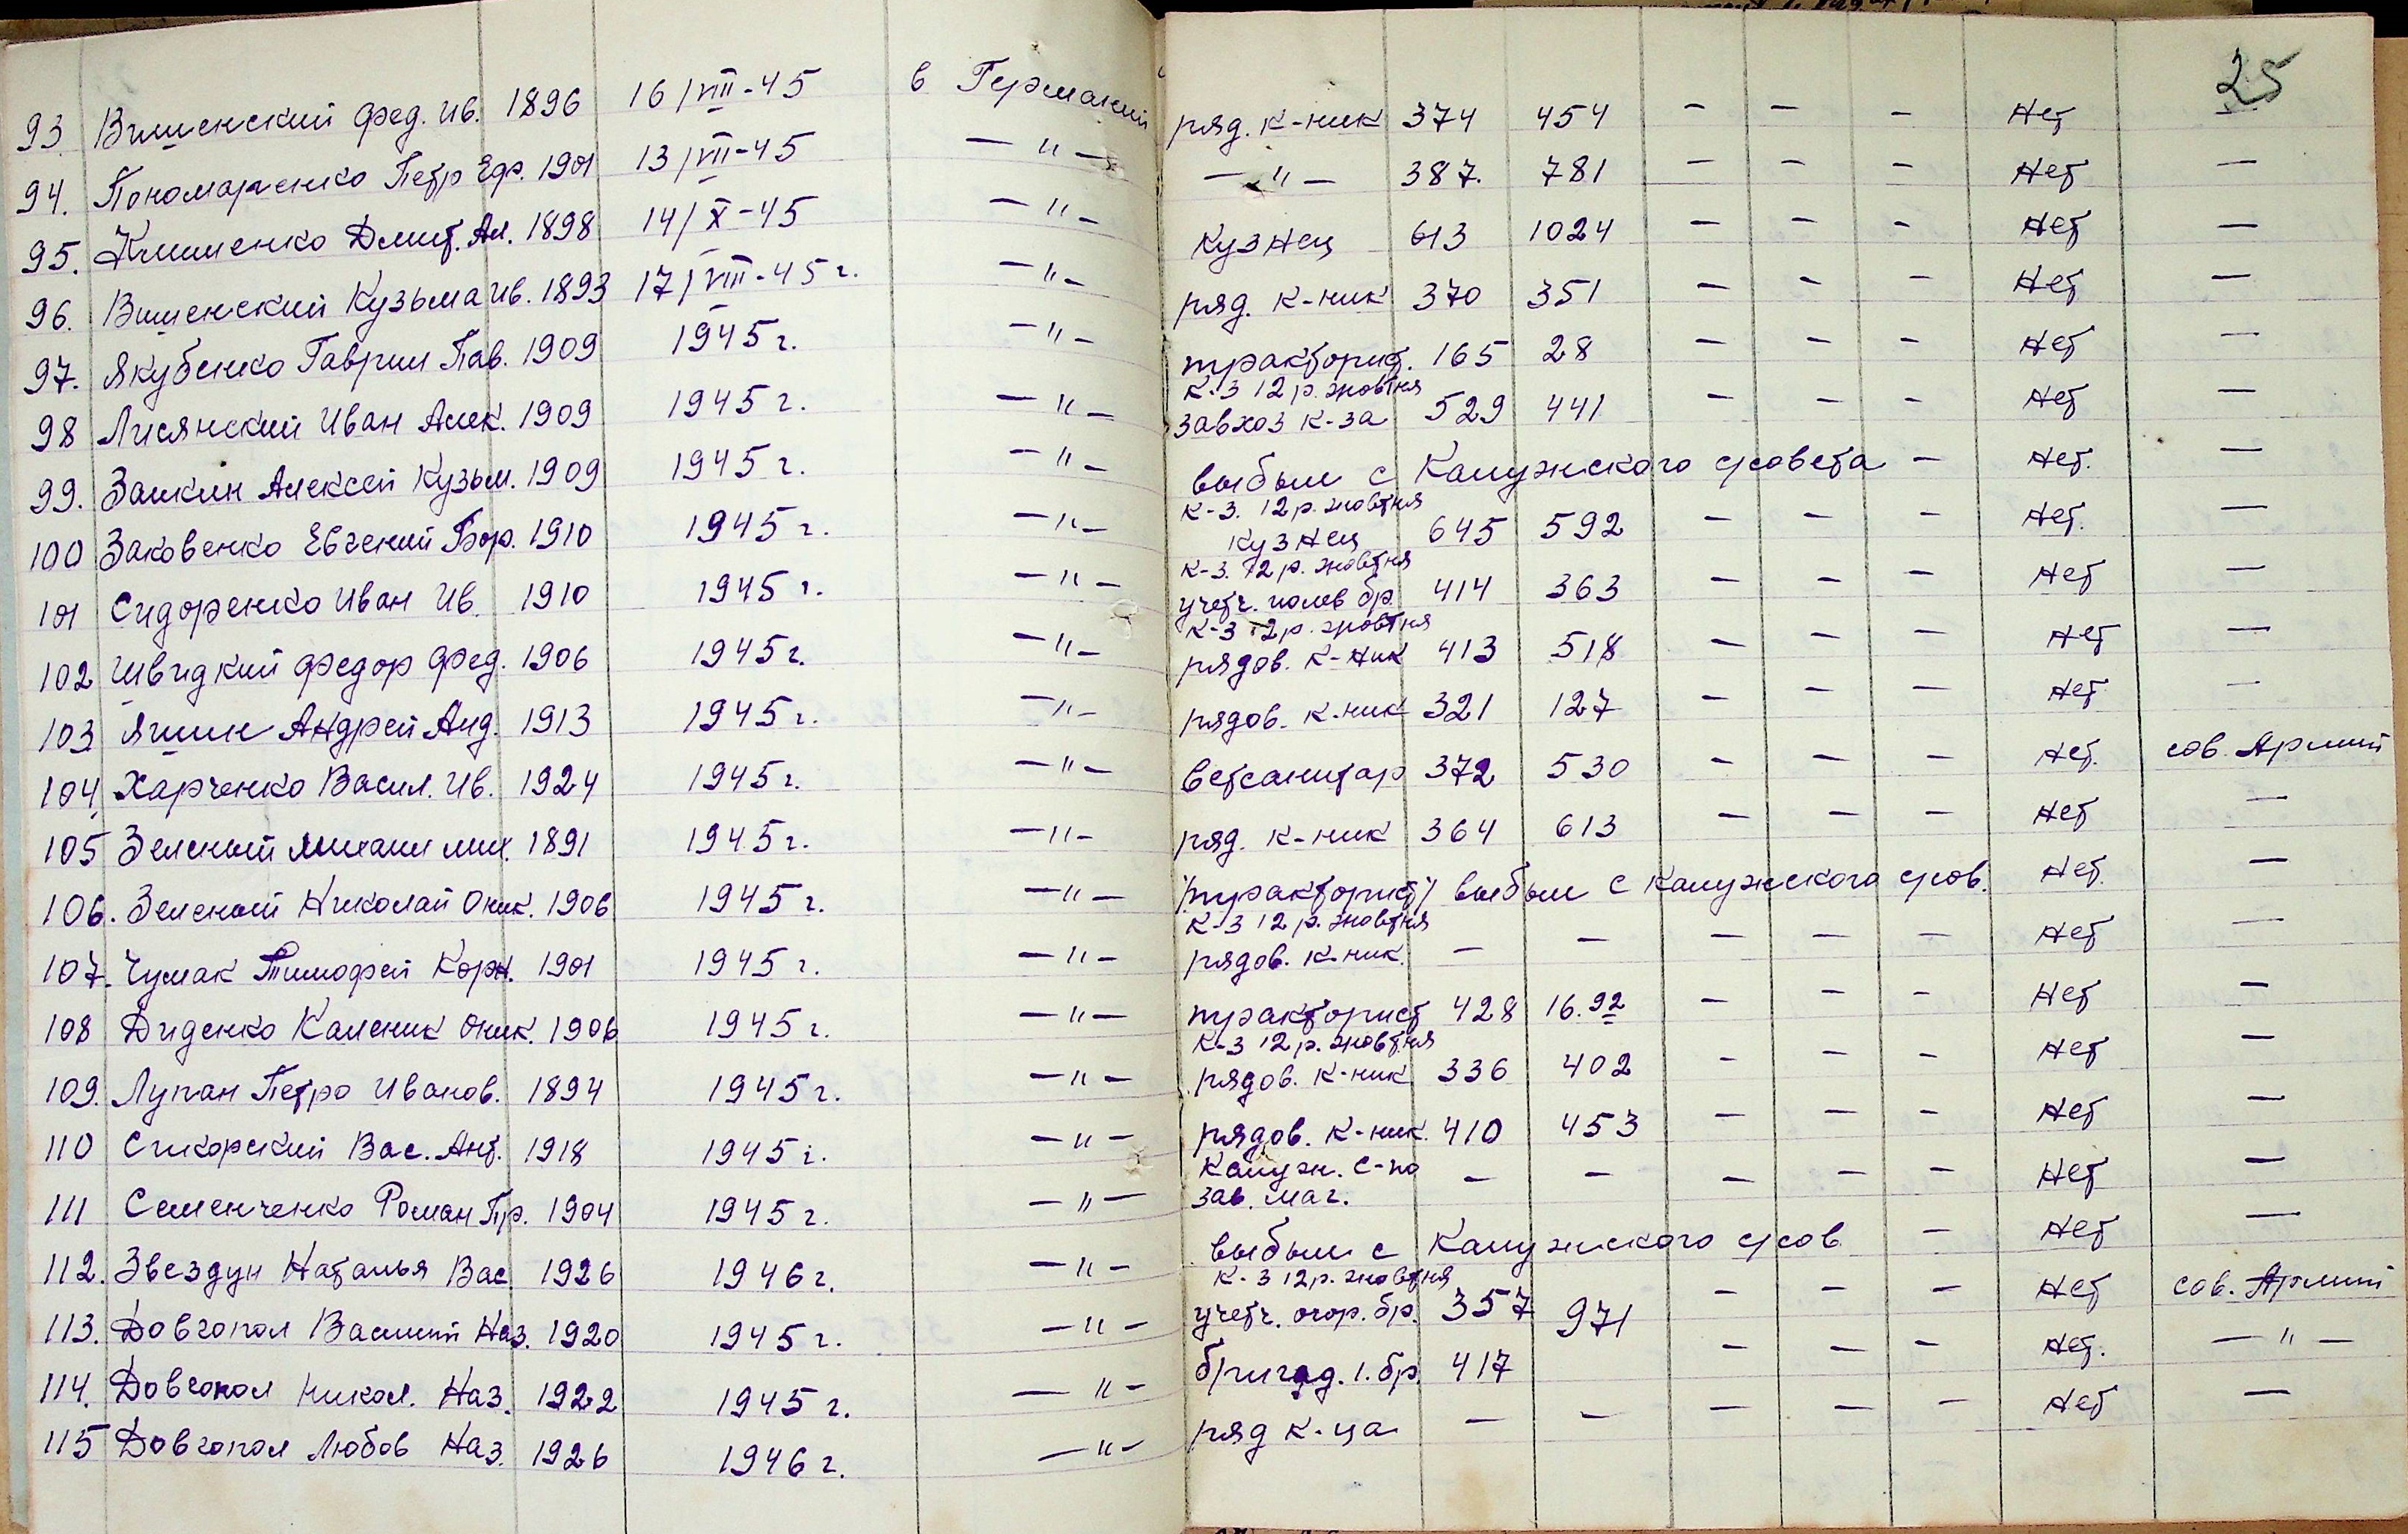 25
93. Вишенский Фед. Ив. 1896 16/VIII-45 в Германии ряд. к-ник 374 454 - - - Нет -
94. Пономаренко Петр Еф. 1901 13/VIII-45 -"- -"- 387. 781 - - - Нет -
95. Клименко Дмит. Ал. 1898 14/X-45 -"- Кузнец 613 1024 - - - Нет -
96. Вишенский Кузьма Ив. 1893 17/VIII-45 г. -"- ряд. к-ник 370 351 - - - Нет -
97. Якубенко Гаврил Пав. 1909 1945 г. -"- тракторист. 165 28 - - - Нет -
98 Лисянский Иван Алек. 1909 1945 г. -"- к-з 12 р. жовтня завхоз к-за 529 441 - - - Нет -
99. Заикин Алексей Кузьм. 1909 1945 г. -"- выбыл с Калужского с/совета - Нет. -
100 Заковенко Евгений Бор. 1910 1945 г. -"- к-з. 12 р. жовтня кузнец 645 592 - - - Нет. -
101 Сидоренко Иван Ив. 1910 1945 г. -"- к-з. 12 р. жовтня учетч. полев бр. 414 363 - - - Нет -
102 Швидкий Федор Фед. 1906 1945 г. -"- к-з 12 р. жовтня рядов. к-ник 413 518 - - - Нет -
103 Яшин Андрей Анд. 1913 1945 г. -"- рядов. к-ник 321 127 - - - Нет -
104 Харченко Васил. Ив. 1924 1945 г. -"- ветсанитар 372 530 - - - Нет. сов. Армии
105 Зеленый Михаил Мих. 1891 1945 г. -"- ряд. к-ник 364 613 - - - Нет -
106. Зеленый Николай Оник. 1906 1945 г. -"- /тракторист/ выбыл с Калужского с/сов. Нет. -
107. Чумак Тимофей Корн. 1901 1945 г. -"- к-з 12 р. жовтня рядов. к-ник. - - - - - Нет -
108 Диденко Каленик Оник. 1906 1945 г. -"- тракторист 428 16.92 - - - Нет -
109. Лупан Петро Иванов. 1894 1945 г. -"- к-з 12 р. жовтня рядов. к-ник 336 402 - - - Нет -
110 Сикорский Вас. Ант. 1918 1945 г. -"- рядов. к-ник. 410 453 - - - Нет -
111 Семенченко Роман Гр. 1904 1945 г. -"- Калужн. С-по зав. маг. - - - - - Нет -
112. Звездун Наталья Вас. 1926 1946 г. -"- выбыл с Калужского с/сов. - Нет -
113. Довгопол Василий Наз. 1920 1945 г. -"- к-з 12 р. жовтня учетч. огор. бр. 357 971 - - - Нет сов. Армии
114. Довгопол Никол. Наз. 1922 1945 г. -"- бригад. 1. бр. 417 - - - Нет. -"-
115 Довгопол Любов Наз. 1926 1946 г. -"- ряд к-ца - - - - - Нет -